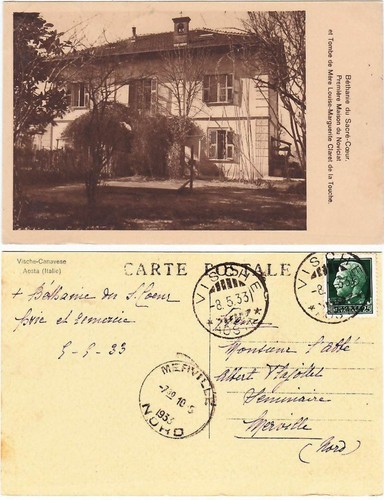 Béthanie du Sacré-Cœur.
Première Maison du Noviciat
et Tombe de Mère Louise-Marguerite Claret de la Touche.
Vische-Canavese
Aosta (Italie)
CARTE POSTALE
VISCHE
-8.5.33
VISCHE
-8.
+ Béthanie du S. Coeur
5-5-33
Monsieur l'abbé
Albert
Séminaire
Merville
(Nord)
MERVILLE
1933
NORD